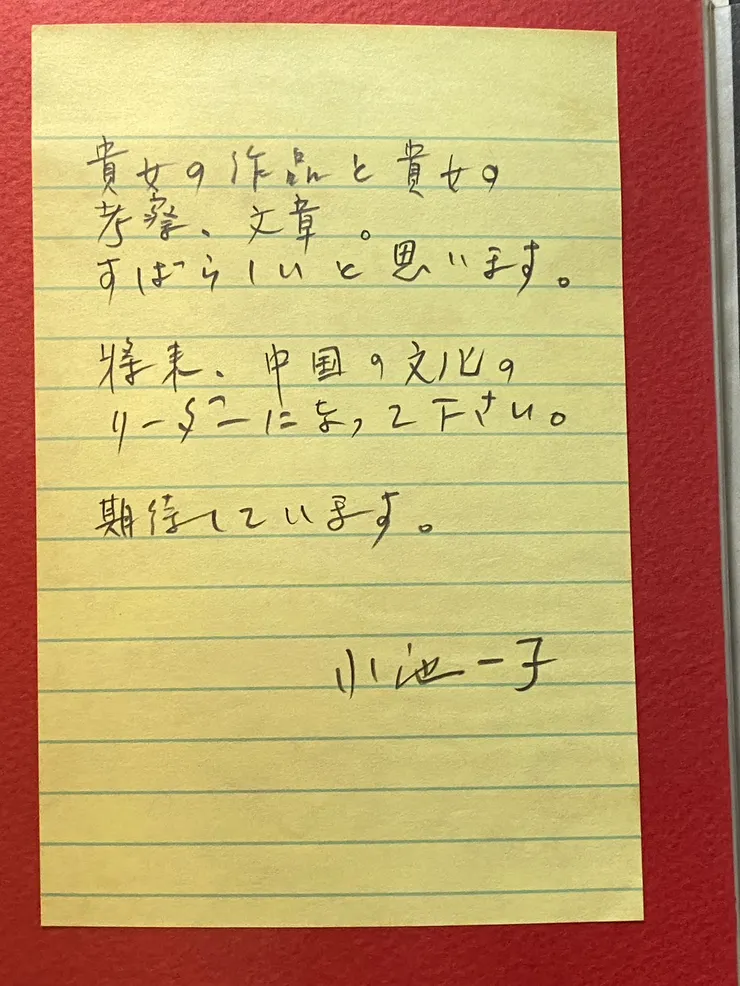 貴女の作品と貴女の
考察、文章。
すばらしいと思います。
将来、中国の文化の
リーダーになって下さい。
期待しています。
小池一子